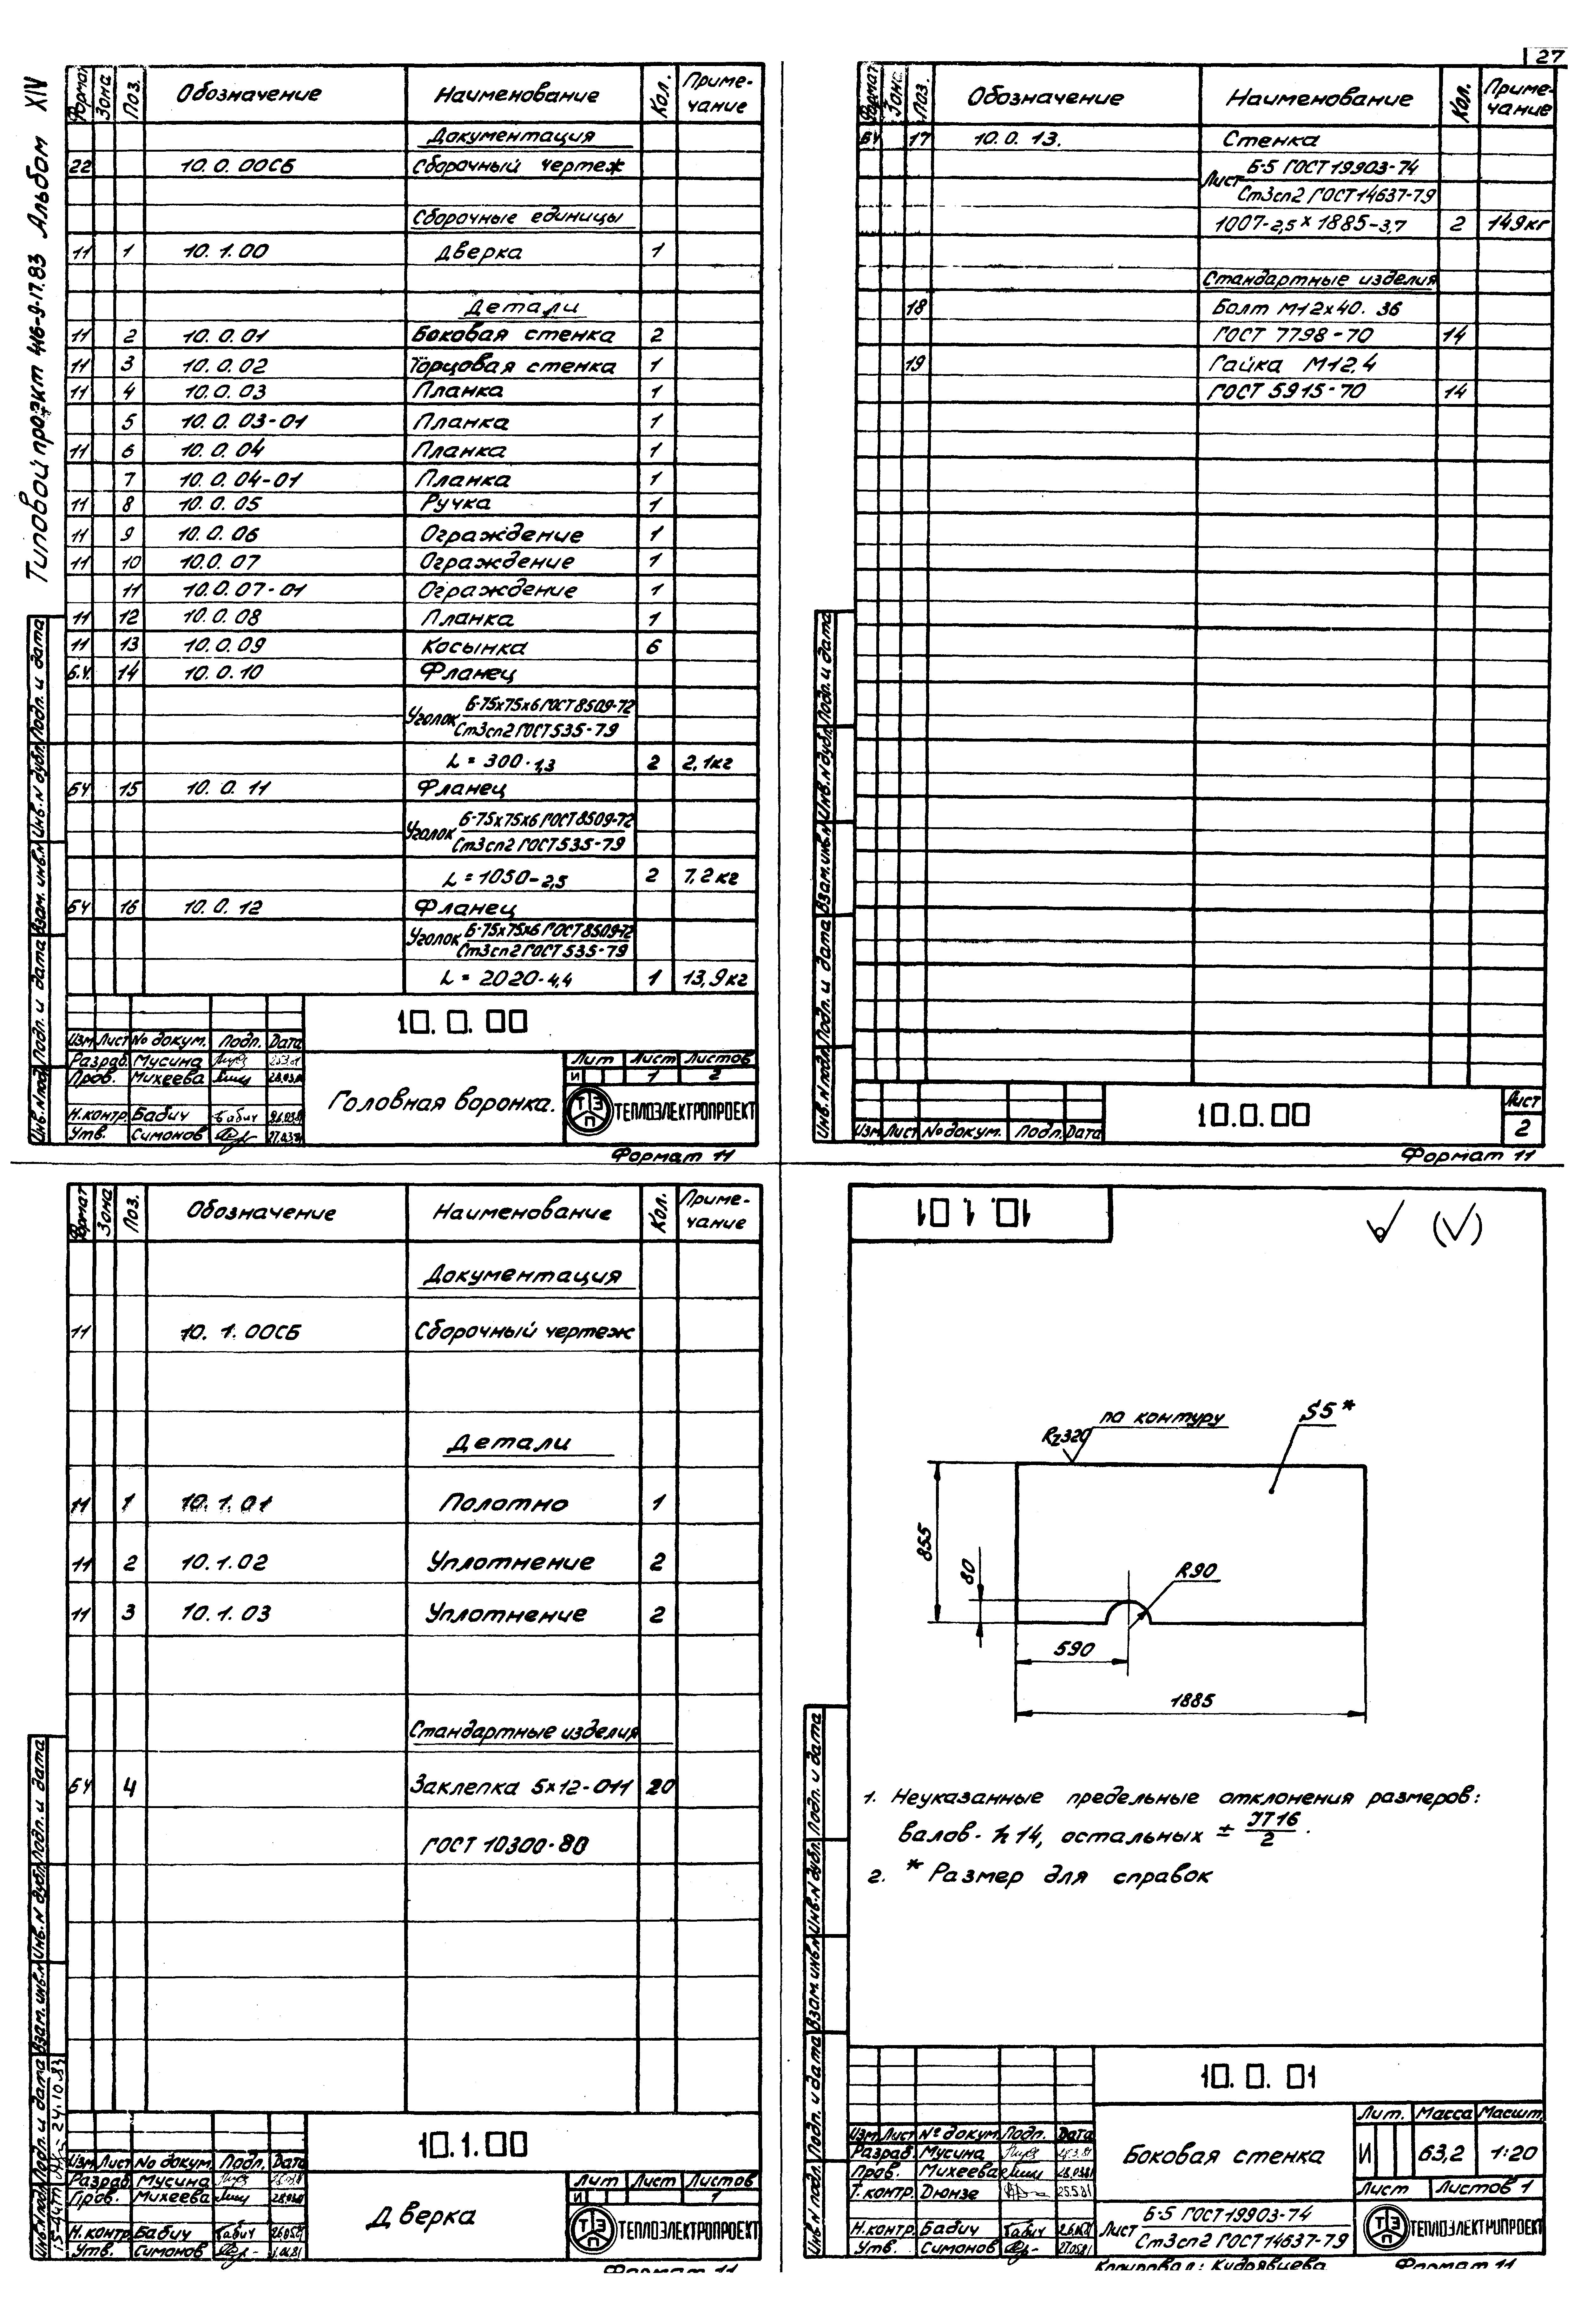 27
Типовой проект 416-9-17.83 Альбом XIV
Формат Зона Поз. Обозначение Наименование Кол. Примечание
Документация
22 10.0.00СБ Сборочный чертеж
Сборочные единицы
11 1 10.1.00 Дверка 1
Детали
11 2 10.0.01 Боковая стенка 2
11 3 10.0.02 Торцовая стенка 1
11 4 10.0.03 Планка 1
5 10.0.03-01 Планка 1
11 6 10.0.04 Планка 1
7 10.0.04-01 Планка 1
11 8 10.0.05 Ручка 1
11 9 10.0.06 Ограждение 1
11 10 10.0.07 Ограждение 1
11 10.0.07-01 Ограждение 1
11 12 10.0.08 Планка 1
11 13 10.0.09 Косынка 6
Б.Ч. 14 10.0.10 Фланец
Уголок Б-75х75х6 ГОСТ 8509-72
Ст3сп2 ГОСТ 535-79
L = 300-1,3 2 2,1кг
БЧ 15 10.0.11 Фланец
Уголок Б-75х75х6 ГОСТ 8509-72
Ст3сп2 ГОСТ 535-79
L = 1050-2,5 2 7,2кг
БЧ 16 10.0.12 Фланец
Уголок Б-75х75х6 ГОСТ 8509-72
Ст3сп2 ГОСТ 535-79
L = 2020-4,4 1 13,9кг
Инв.N подл. Подп. и дата Взам. инв.N Инв.N дубл. Подп. и дата
10.0.00
Изм Лист № докум. Подп. Дата
Разраб. Мусина
Пров. Михеева 28.03.81
Н.контр. Бабич
Утв. Симонов
Головная воронка.
Лит Лист Листов
И 1 2
ТЭП ТЕПЛОЭЛЕКТРОПРОЕКТ
Формат 11
Формат Зона Поз. Обозначение Наименование Кол. Примечание
БЧ 17 10.0.13. Стенка
Лист Б-5 ГОСТ 19903-74
Ст3сп2 ГОСТ 14637-79
1007-2,5 х 1885-3,7 2 149кг
Стандартные изделия
18 Болт М12х40.36
ГОСТ 7798-70 14
19 Гайка М12.4
ГОСТ 5915-70 14
Инв.N подл. Подп. и дата Взам. инв.N Инв.N дубл. Подп. и дата
Изм Лист № докум. Подп. Дата
10.0.00
Лист
2
Формат 11
Формат Зона Поз. Обозначение Наименование Кол. Примечание
Документация
11 10.1.00СБ Сборочный чертеж
Детали
11 1 10.1.01 Полотно 1
11 2 10.1.02 Уплотнение 2
11 3 10.1.03 Уплотнение 2
Стандартные изделия
БЧ 4 Заклепка 5х12-011 20
ГОСТ 10300-80
Инв.N подл. Подп. и дата Взам. инв.N Инв.N дубл. Подп. и дата
24.10.83
10.1.00
Изм Лист № докум. Подп. Дата
Разраб. Мусина
Пров. Михеева
Н.контр. Бабич
Утв. Симонов
Дверка
Лит Лист Листов
И 1
ТЭП ТЕПЛОЭЛЕКТРОПРОЕКТ
Формат 11
10.1.01
Rz320 по контуру
S5*
855
80
R90
590
1885
1. Неуказанные предельные отклонения размеров:
валов - h14, остальных ± IT16/2.
2. * Размер для справок
Инв.N подл. Подп. и дата Взам. инв.N Инв.N дубл. Подп. и дата
10.0.01
Изм Лист № докум. Подп. Дата
Разраб. Мусина
Пров. Михеева 28.03.81
Т.контр. Дюнзе 25.5.81
Н.контр. Бабич
Утв. Симонов 27.05.81
Боковая стенка
Лит. Масса Масшт.
И 63,2 1:20
Лист Листов 1
Лист Б-5 ГОСТ 19903-74
Ст3сп2 ГОСТ 14637-79
ТЭП ТЕПЛОЭЛЕКТРОПРОЕКТ
Копировал: Кудрявцева Формат 11